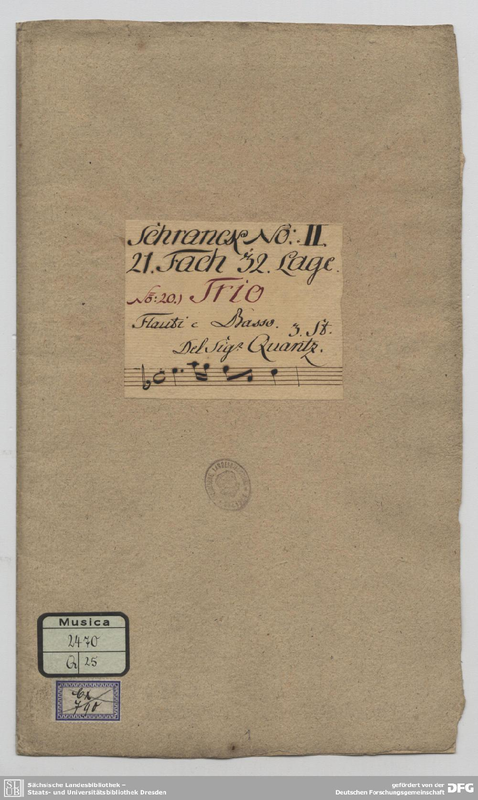 Schranck No: II.
21. Fach 32. Lage.
No: 20.) Trio
Flauti e Basso. 3. St.
Del Sigr. Quantz.
Musica
2470
Q 25
790
Sächsische Landesbibliothek –
Staats- und Universitätsbibliothek Dresden
gefördert von der
Deutschen Forschungsgemeinschaft
DFG